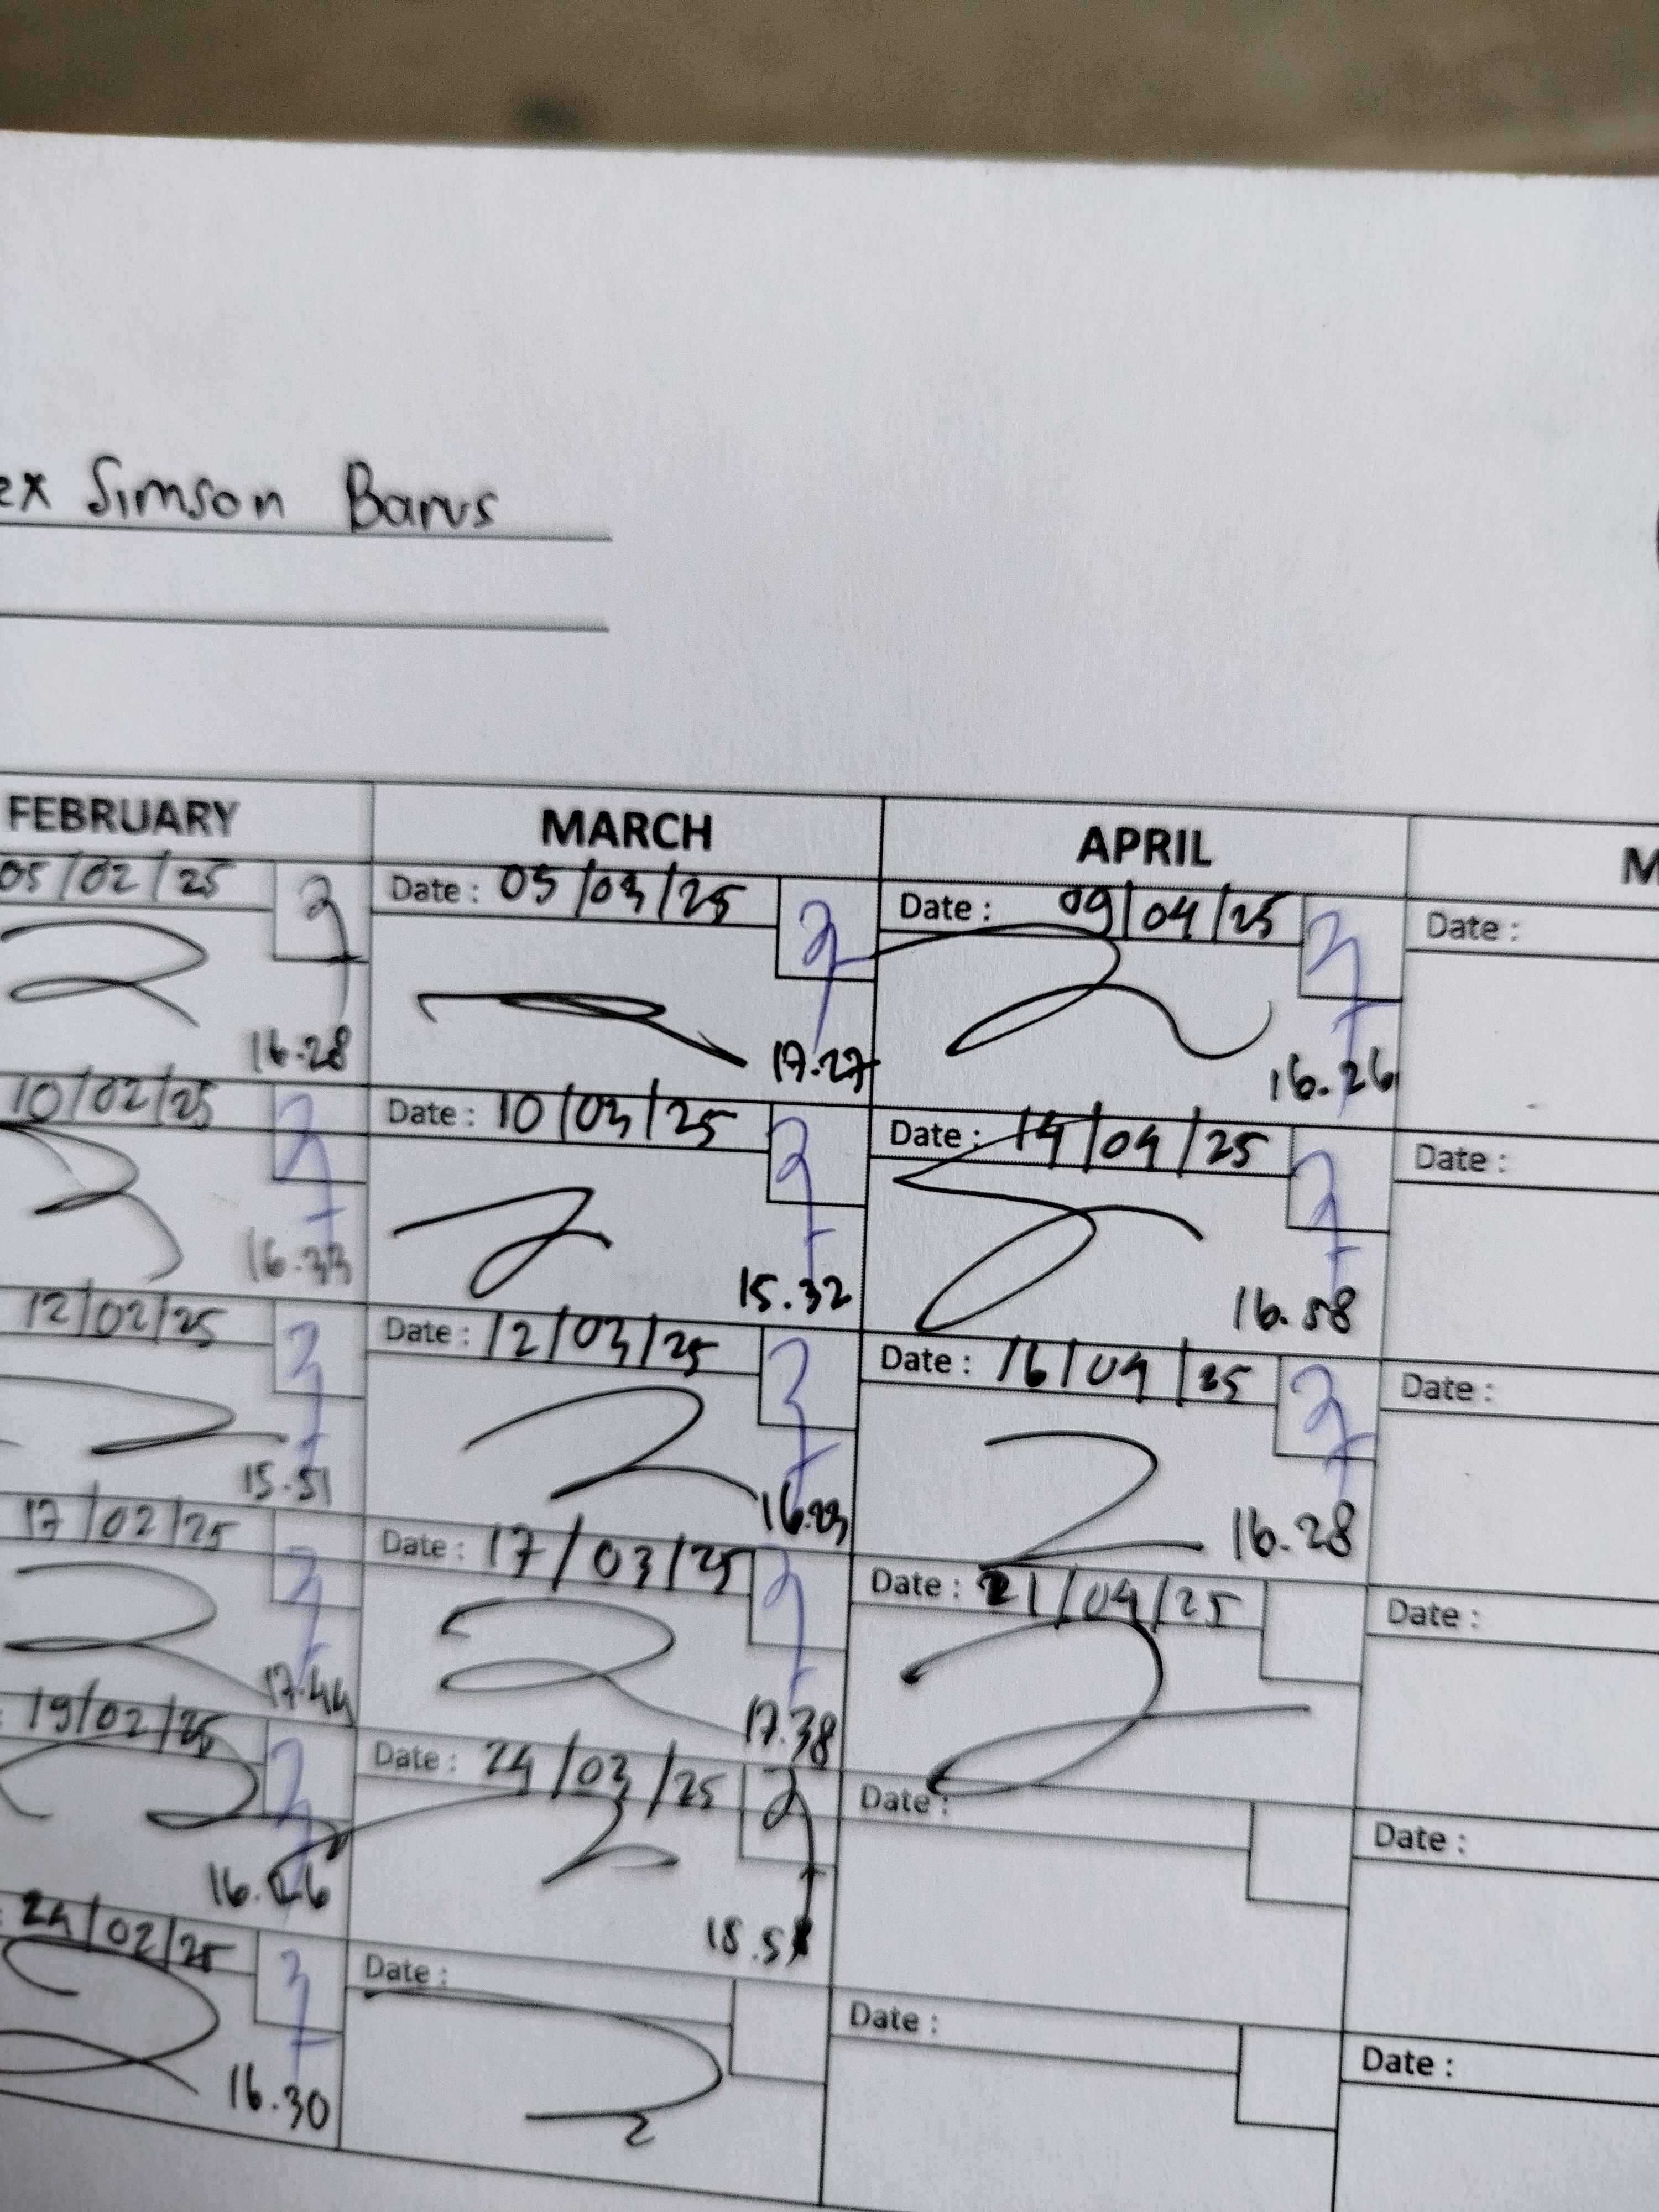 ex Simson Barus
FEBRUARY MARCH APRIL M
05/02/25 Date : 05/03/25 Date : 09/04/25 Date :
16.28 17.27 16.26
10/02/25 Date : 10/03/25 Date : 14/04/25 Date :
16.33 15.32 16.58
12/02/25 Date : 12/03/25 Date : 16/04/25 Date :
15.51 16.28
17/02/25 Date : 17/03/25 Date : 21/04/25 Date :
17.44 17.38
19/02/25 Date : 24/03/25 Date : Date :
24/02/25 Date : Date : Date :
16.30